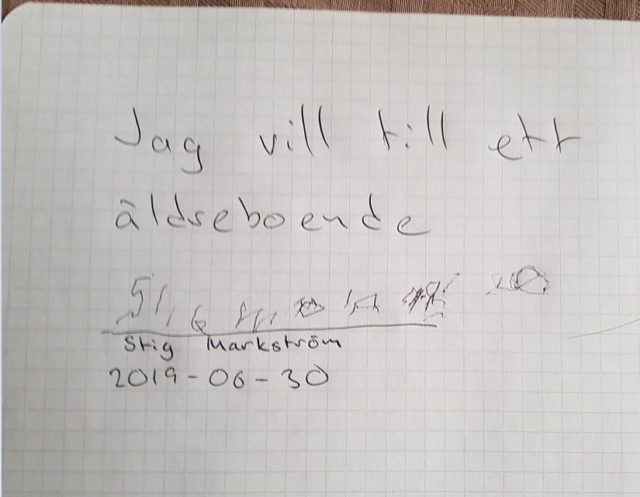 Jag vill till ett
äldseboende
Stig Markström
2019-06-30